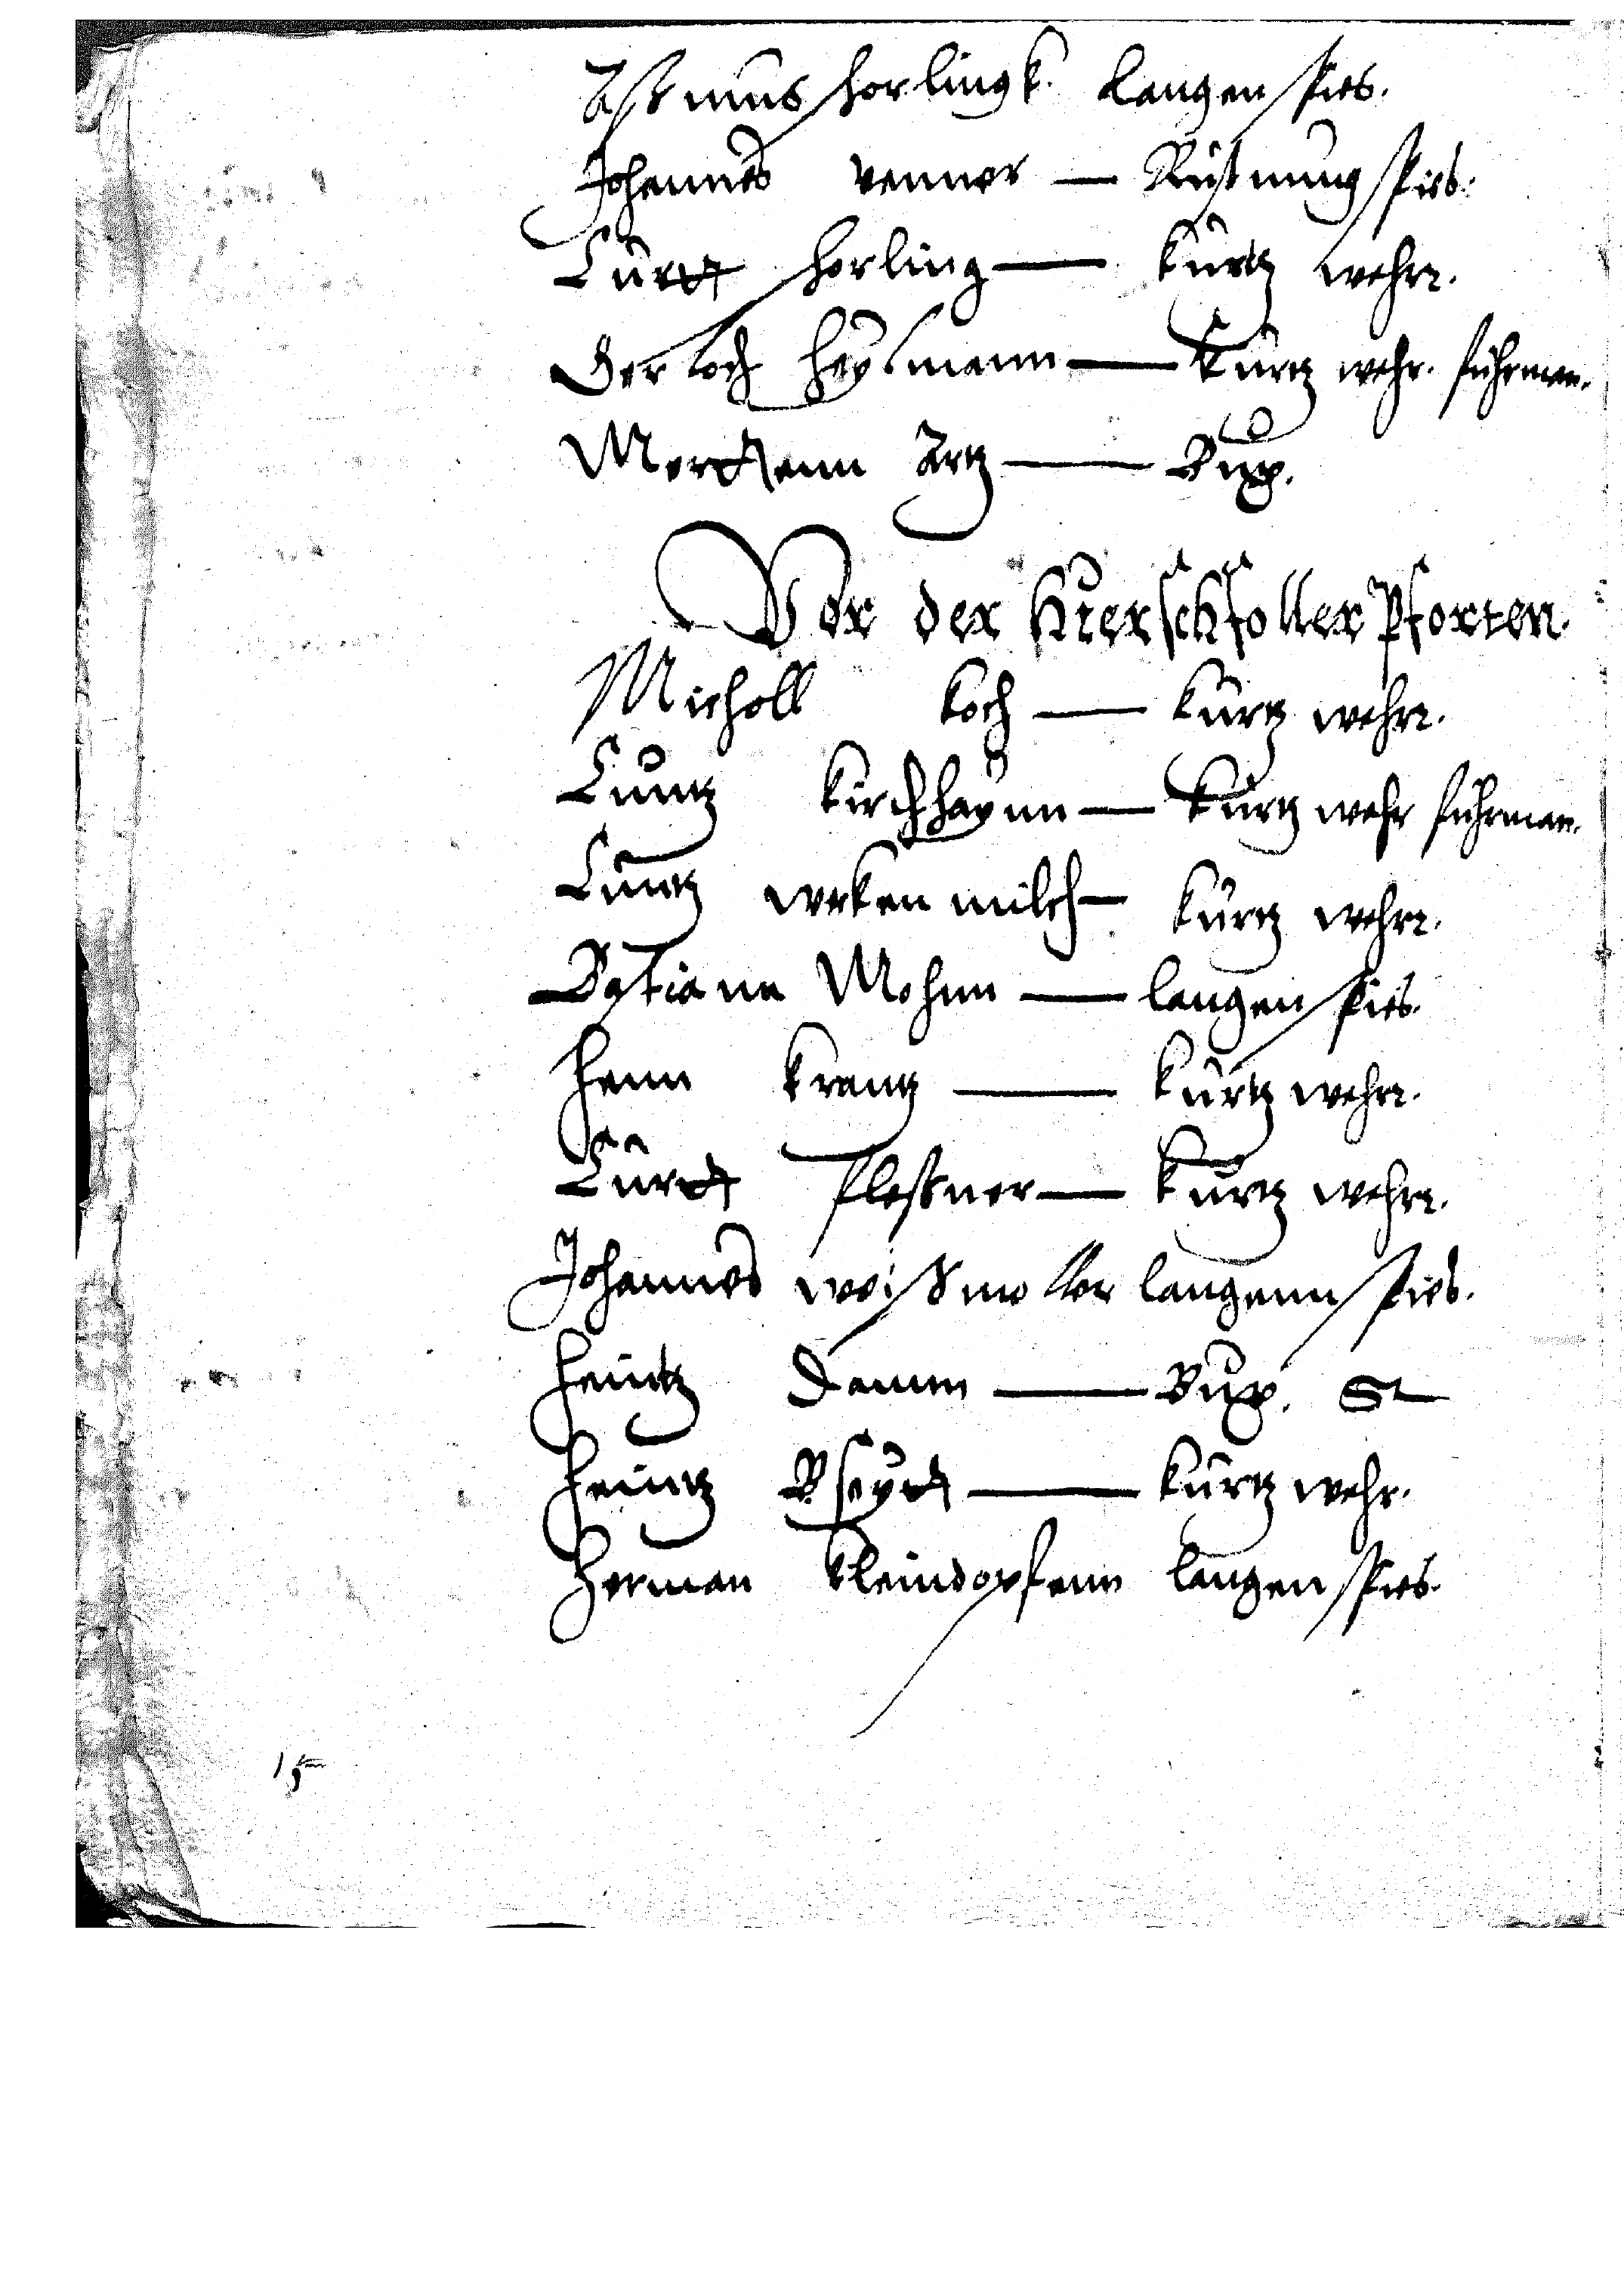 Aßmus horlingk. Langen spies.
Johannes venner — Rüstnung spies.
Curdt horling — kurtz wehr.
Gerlach heysmann — kurtz wehr. fuhrman.
Merdtenn Artz — Bux.
Vor der Hierschfoller Pforten.
Micholl koch — kurtz wehr.
Cuntz kirchhaynn — kurtz wehr fuhrman.
Cuntz wekenmilch — kurtz wehr.
Bastiann Mohnn — langen spies.
henn krantz — kurtz wehr.
Curdt Fleßner — kurtz wehr.
Johannes weißmoller langenn spies.
heintz Damm — Bux. St
heintz — kurtz wehr.
Herman kleindopfenn langen spies.